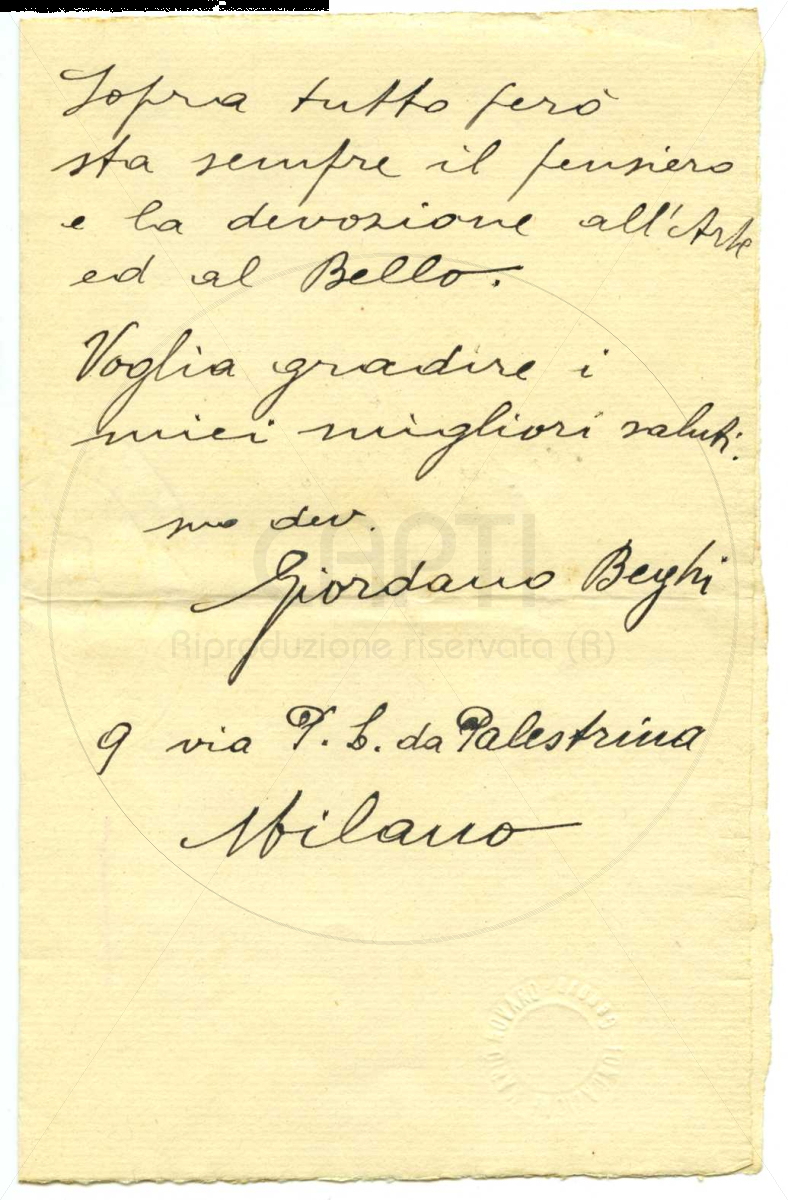 Sopra tutto però
sta sempre il pensiero
e la devozione all'Arte
ed al Bello.
Voglia gradire i
miei migliori saluti.
suo dev.
Giordano Beghi
CAPTI
Riproduzione riservata (R)
9 via P. L. da Palestrina
Milano
MARIO NOVARO